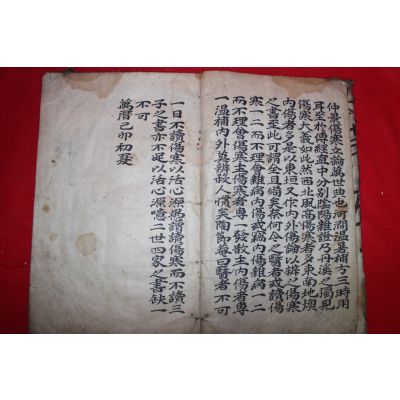 仲景傷寒之論萬世典也河間溫暑補方三時用
耳至於傳經直中分別陰陽雜證乃丹溪之獨見
傷寒大義如此然西北風高傷寒者多東南地燠
內傷者多是以東垣又作內外傷論以辨之傷寒
之書至此可謂全且備矣奈何今之醫者或讀傷
寒一二而不理會雜病內傷或窺內傷雜病一二
而不理會傷寒主傷寒者專一發散主內傷者專
一溫補內外莫辨故人慎矣陶節菴曰醫者不可
一日不讀傷寒以活心源愚謂讀傷寒而不讀三
子之書亦不足以活心源噫二世四家之書缺一
不可
萬曆己卯初夏